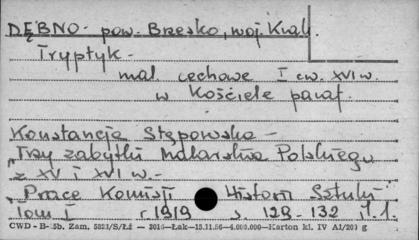 DĘBNO - pow. Brzesko, woj. Krak.
Tryptyk -
mal. cechowe I ćw. XVI w.
w Kościele paraf.
Konstancja Stępowska -
„Trzy zabytki Malarstwa Polskiego
z XV i XVI w. -
„Prace Komisji Historii Sztuki
Tom I r. 1919 s. 129-132 il. 1.
CWD - B-5b. Zam. 5821/S/Łź — 2016—Łak—15.11.56—4.000.000—Karton kl. IV A1/200 g